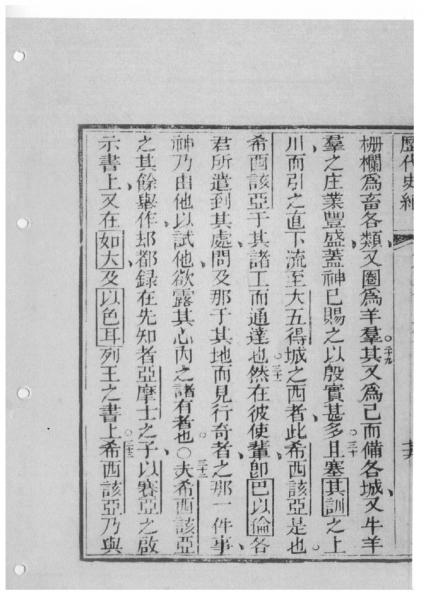 歷代史紀
柵欄爲畜各類又圈爲羊羣其又爲己而備各城又牛羊
羣之庄業豐盛蓋神已賜之以殷實甚多且塞其訓之上
川而引之直下流至大五得城之西者此希西該亞是也
希西該亞于其諸工而通達也然在彼使輩卽巴以倫各
君所遣到其處問及那于其地而見行奇者之那一件事
神乃由他以試他欲露其心內之諸有者也〇夫希西該亞
之其餘舉作𨚫都錄在先知者亞摩士之子以賽亞之啟
示書上又在如大及以色耳列王之書上希西該亞乃與
二十九
三十
三十一
三十二
三十三